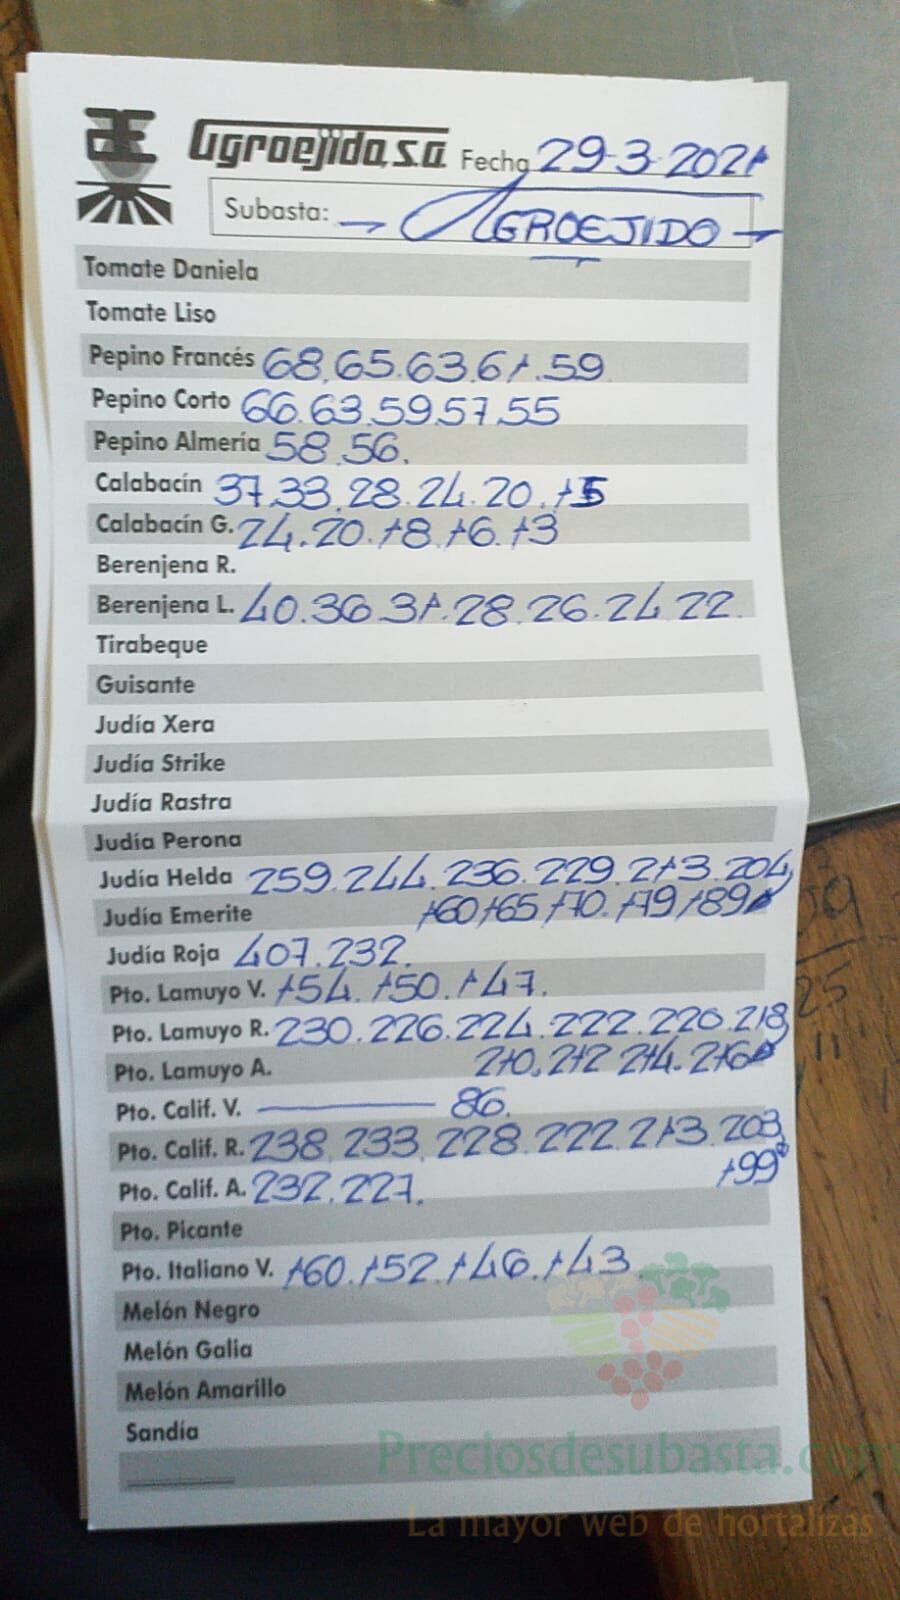 Agroejido, S.A. Fecha 29-3-2021
Subasta: - AGROEJIDO -
Tomate Daniela
Tomate Liso
Pepino Francés 68.65.63.61.59
Pepino Corto 66.63.59.57.55
Pepino Almería 58.56.
Calabacín 37.33.28.24.20.15
Calabacín G. 24.20.18.16.13
Berenjena R.
Berenjena L. 40.36.31.28.26.24.22.
Tirabeque
Guisante
Judía Xera
Judía Strike
Judía Rastra
Judía Perona
Judía Helda 259.244.236.229.213.204
Judía Emerite 160.165.170.179.189
Judía Roja 407.232.
Pto. Lamuyo V. 154.150.147.
Pto. Lamuyo R. 230.226.224.222.220.218
Pto. Lamuyo A. 210.212.214.216
Pto. Calif. V. — 86.
Pto. Calif. R. 238.233.228.222.213.203
199
Pto. Calif. A. 232.227.
Pto. Picante
Pto. Italiano V. 160.152.146.143
Melón Negro
Melón Galia
Melón Amarillo
Sandía
Preciosdesubasta.com
La mayor web de hortalizas